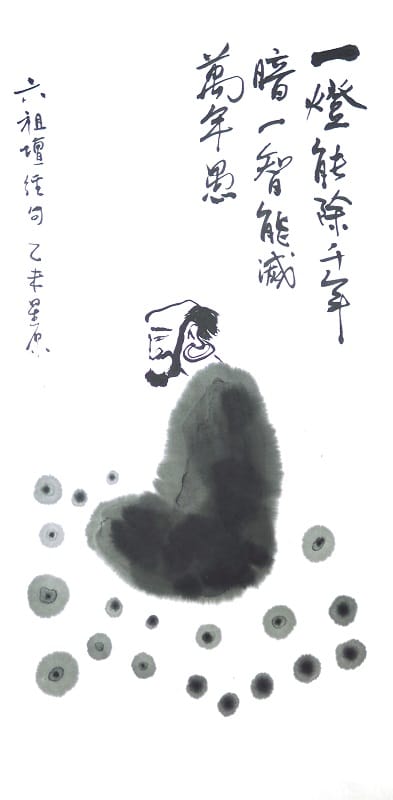 一燈能除千年
暗一智能滅
萬年愚
六祖壇經句乙未星原